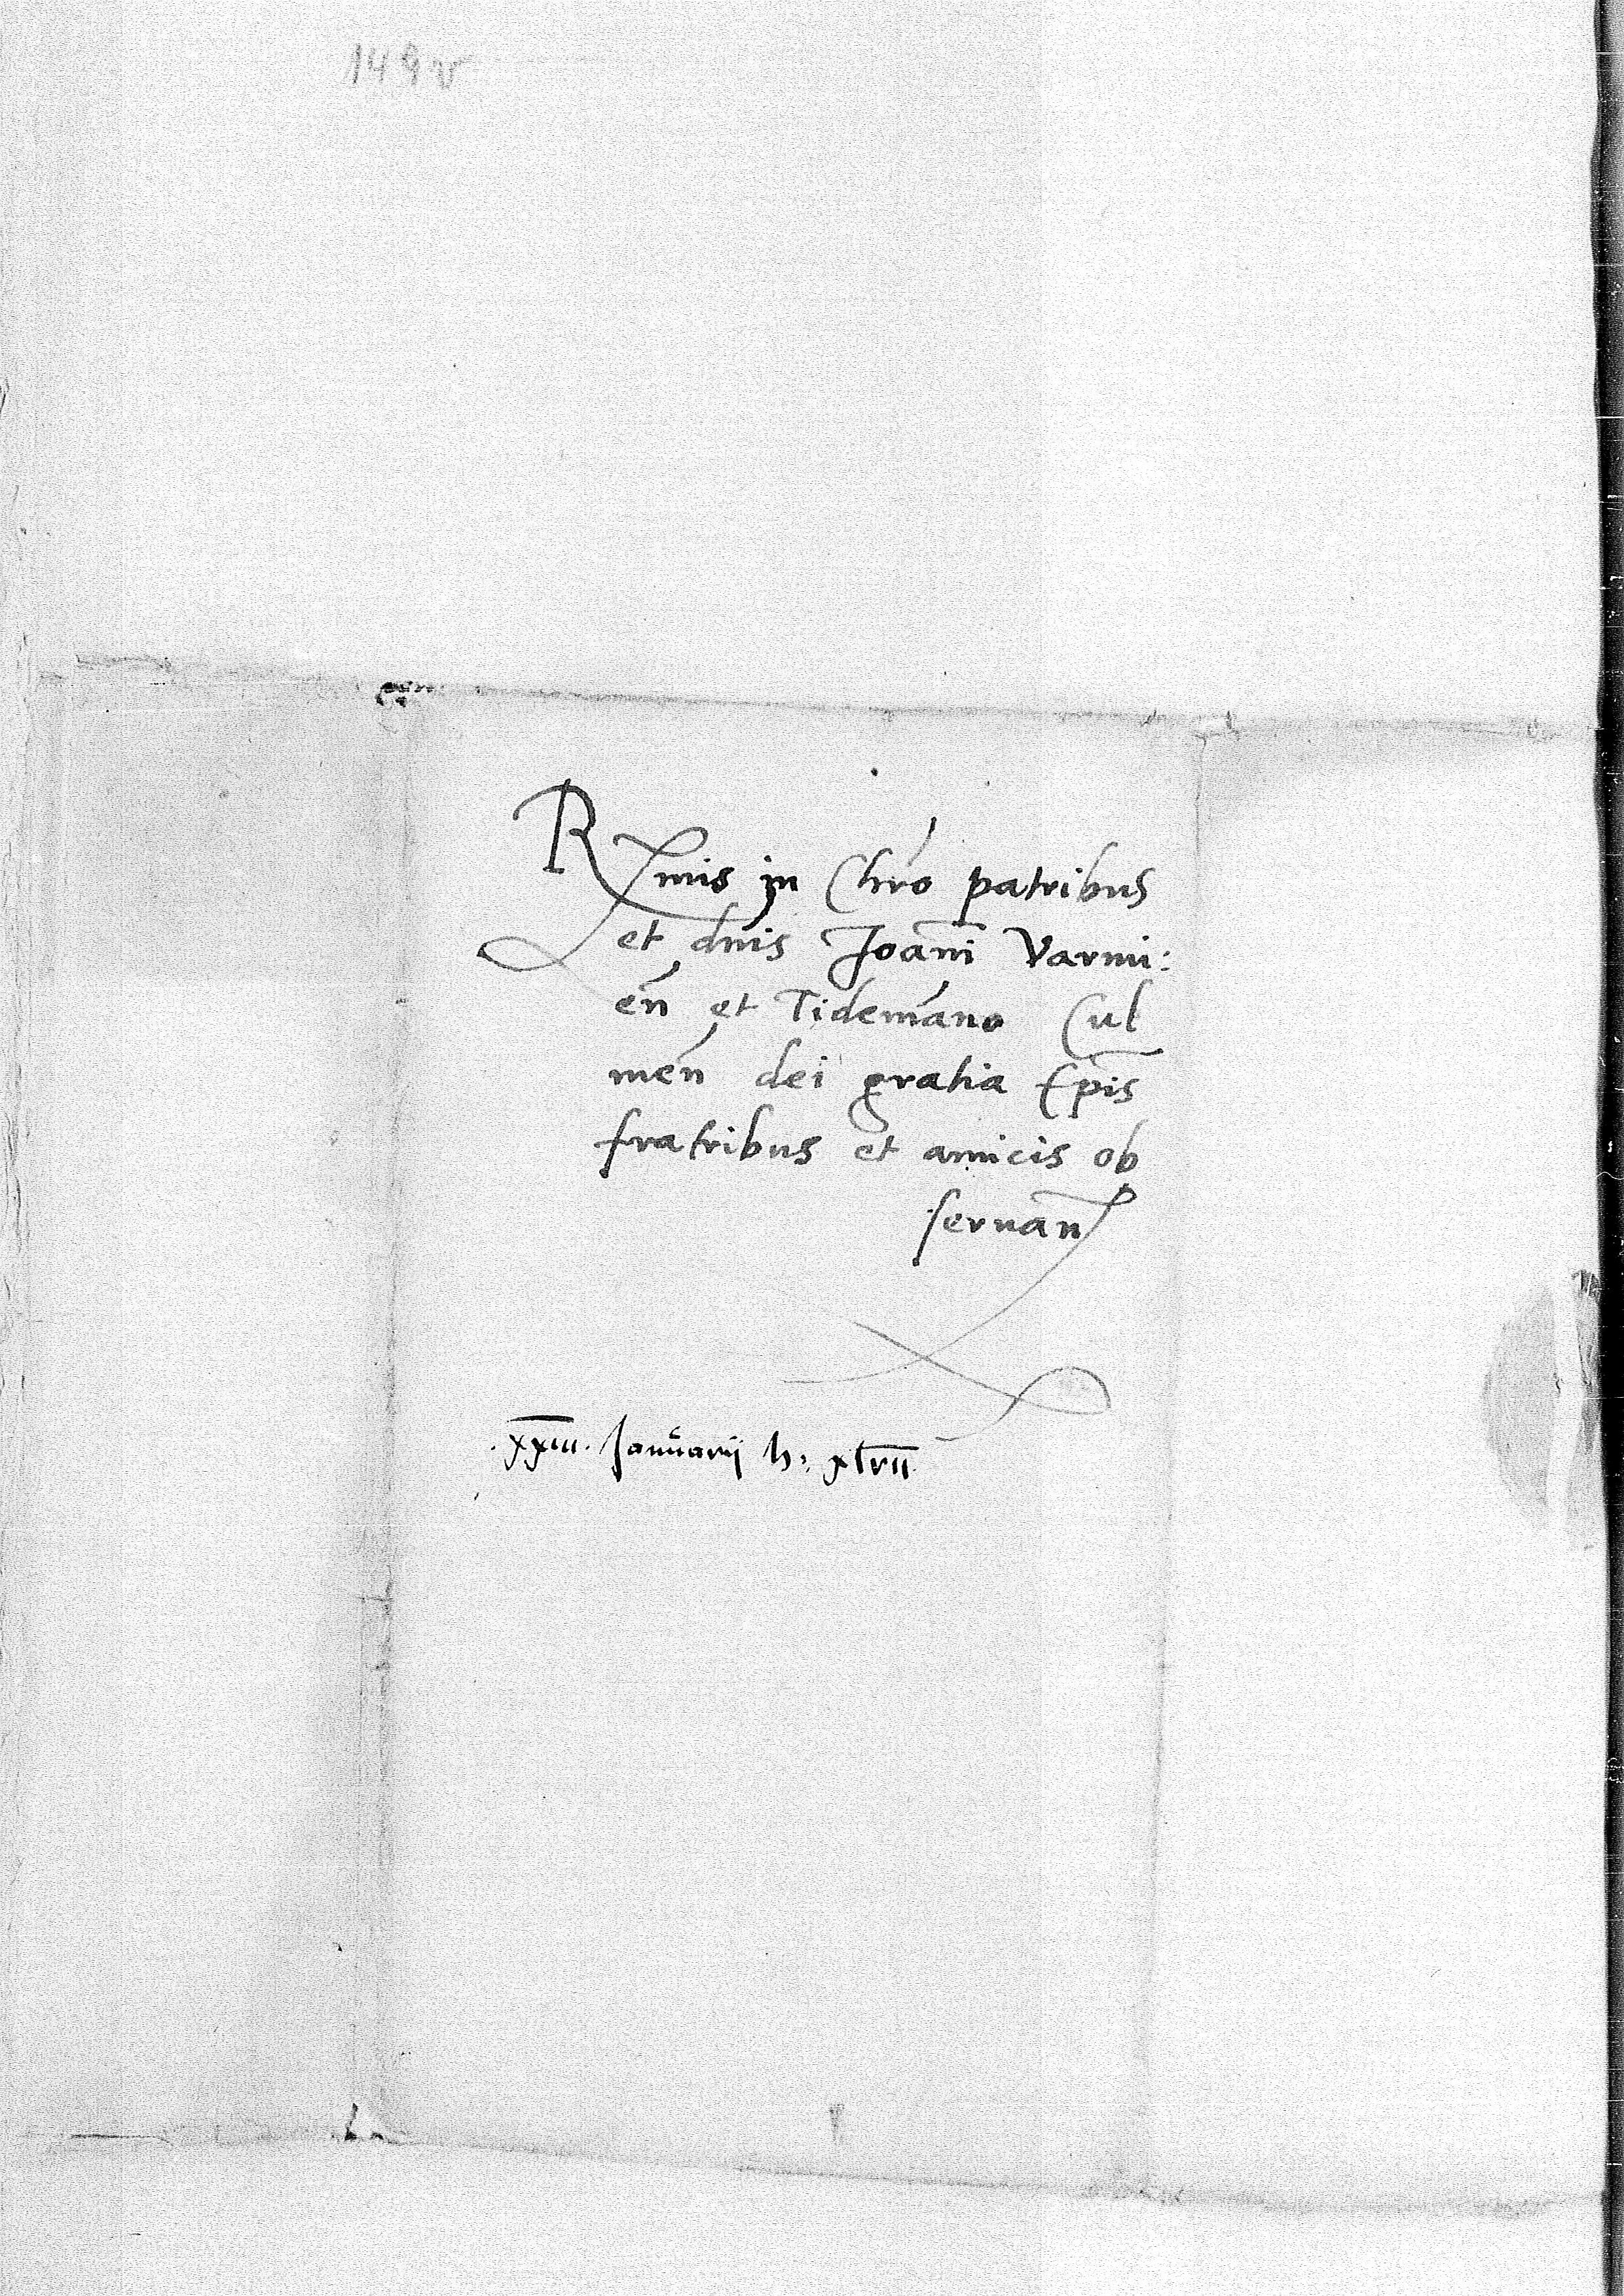 149v
Rmis in Chro patribus
et dnis Joanni Varmi:
en et Tidemanno Cul
men dei gratia Epis
fratribus et amicis ob
seruan
.xxiii. Januarij h: xlvii